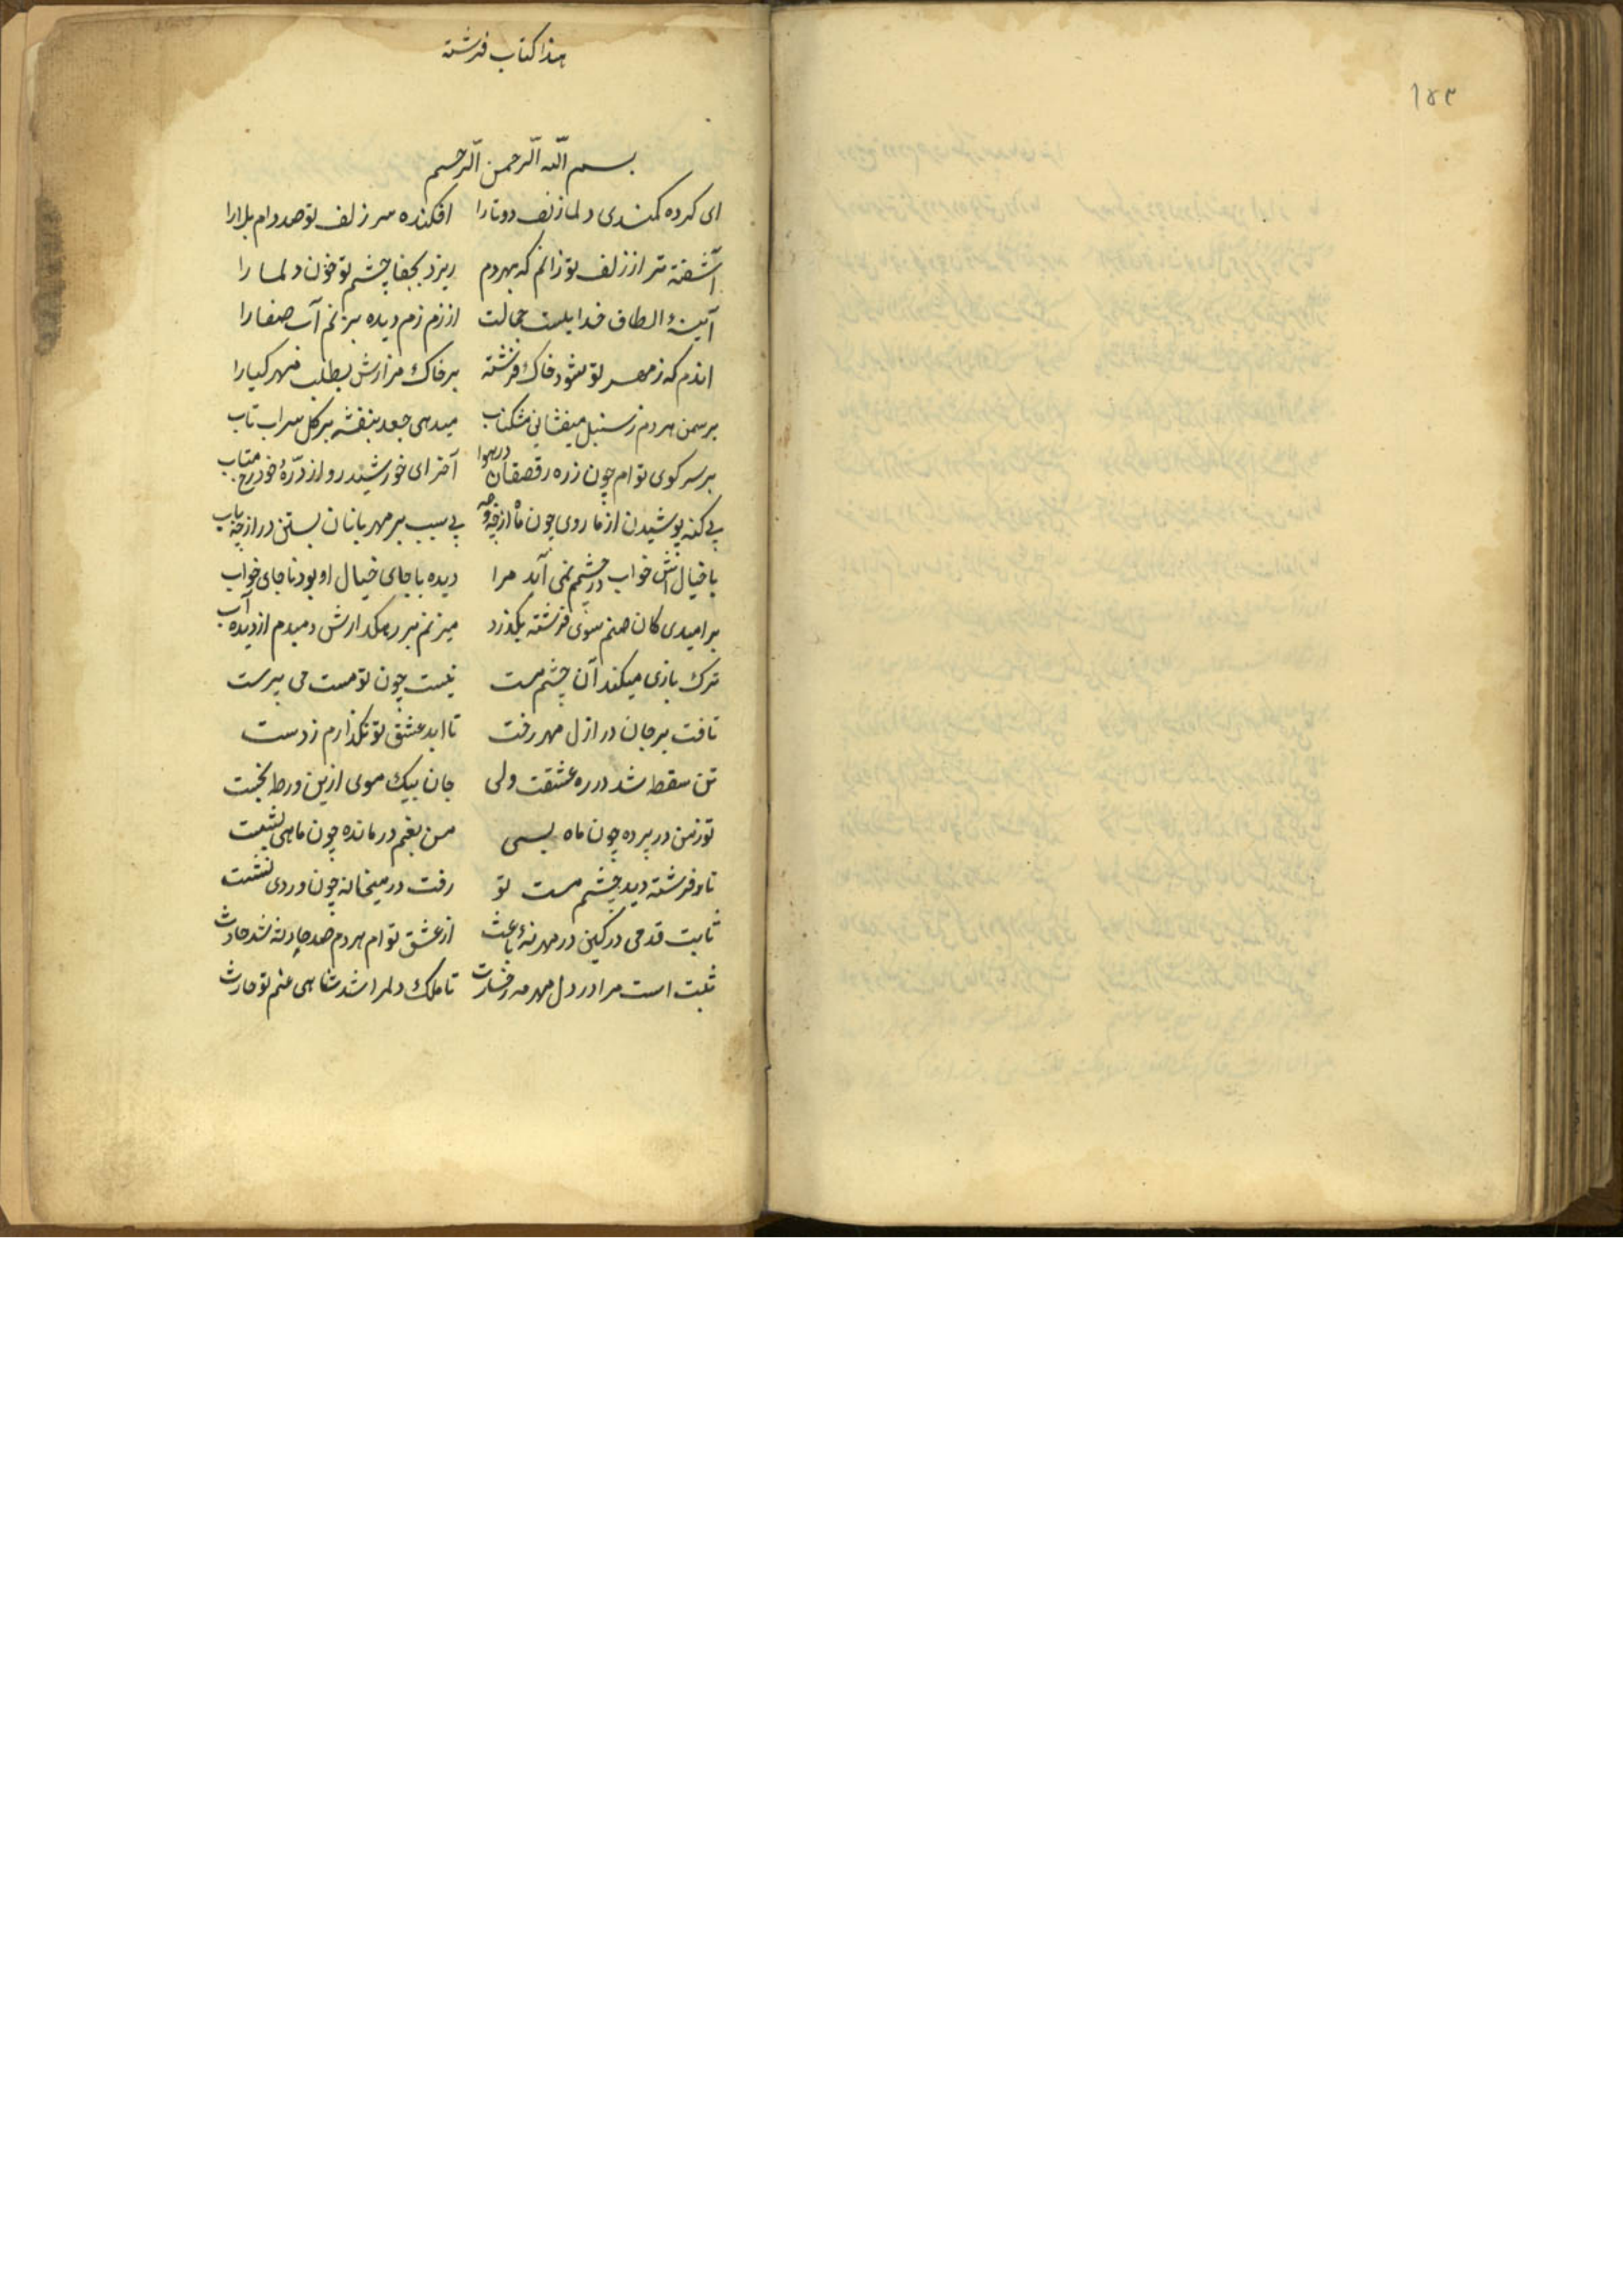 ١٤٣
هذا كتاب فرشته
بسم الله الرحمن الرحيم
ای كرده كمندی دلما زلف دوتا را افكنده سر زلف تو صد دام بلا را
آشفته تر از زلف تو زانم كه بهردم ریزد بجفا چشم تو خون دلما را
آیینۀ الطاف خدایست جمالت از زم زم دیده بزنم آب صفا را
اندم كه ز مهر تو شود خاك فرشته بر خاك مزارش بطلب مهر كیارا
بر سمن هر دم ز سنبل میفشانی مشكناب میدهی جعد بنفشه بر كل سراب تاب
بر سر كوی توام چون زره رقصقان در هوا آخر ای خورشید رو از ذرّۀ خود رخ متاب
بی كنه پوشیدن از ما روی چون ماه از چه وجه بی سبب بر مهربانان بستن در از چه باب
با خیال اش خواب در چشمم نمی آید مرا دیده با جای خیال او بود تا جای خواب
بر امیدی كان صنم سوی فرشته بكذرد میزنم بر رهكذارش دمبدم از دیده آب
ترك بازی میكند آن چشم مست نیست چون تو مست می پرست
تافت بر جان در ازل مهر رخت تا ابد عشق تو نكذارم ز دست
تن سقط شد در ره عشقت ولی جان بیك موی ازین ورطه بجست
تو ز من در پرده چون ماه بسی من بغم در مانده چون ماهی بشست
تا فرشته دید چشم مست تو رفت در میخانه چون دردی نشست
ثابت قدمی در كین در مهر نۀ باعث از عشق توام هر دم صد حادثه شد حادث
ثبت است مرا در دل مهر مه رخسارت تا ملك دلمرا شد شاهی غم تو حارث